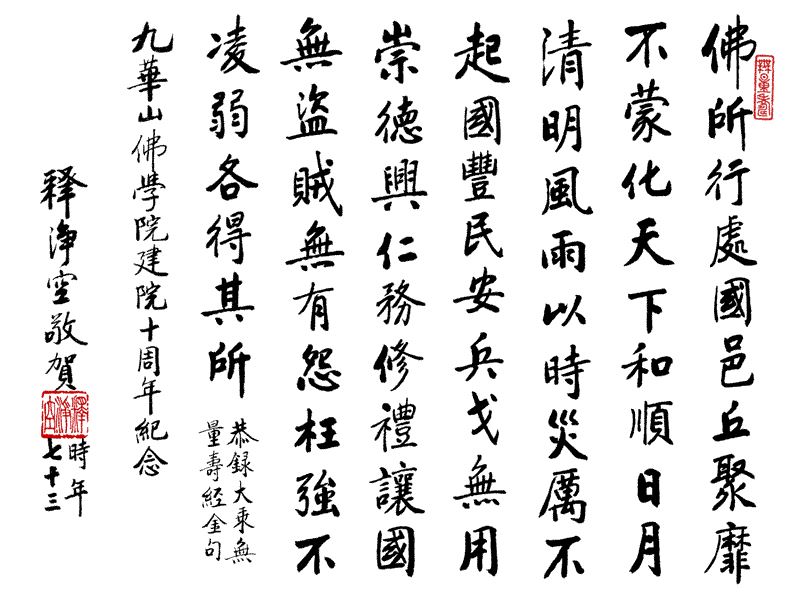 佛所行處國邑丘聚靡
不蒙化天下和順日月
清明風雨以時災厲不
起國豐民安兵戈無用
崇德興仁務修禮讓國
無盜賊無有怨枉強不
凌弱各得其所
恭錄大乘無
量壽經金句
九華山佛學院建院十周年紀念
釋淨空敬賀
時年
七十三